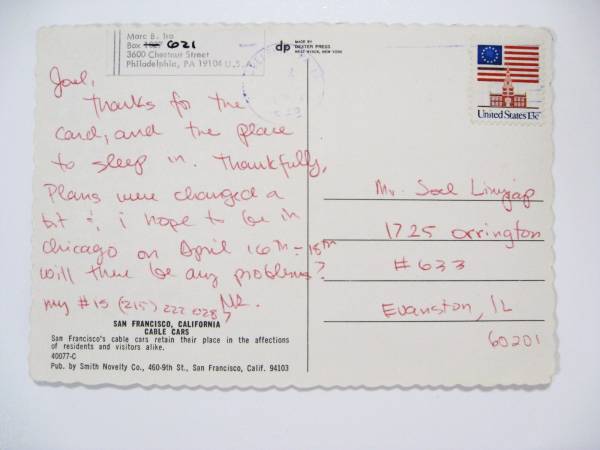 Marc B.
Box 621
3600 Chestnut Street
Philadelphia, PA 19104 U.S.A.
dp MADE BY
DEXTER PRESS
WEST NYACK, NEW YORK
United States 13c
Joel,
Thanks for the
card, and the place
to sleep in. Thankfully,
Plans were changed a
bit & i hope to be in
chicago on April 16th - 18th
will there be any problems?
my # is (215) 222 0287
SAN FRANCISCO, CALIFORNIA
CABLE CARS
San Francisco's cable cars retain their place in the affections
of residents and visitors alike.
40077-C
Pub. by Smith Novelty Co., 460-9th St., San Francisco, Calif. 94103
Mr. Joel
1725 Orrington
# 633
Evanston, IL
60201